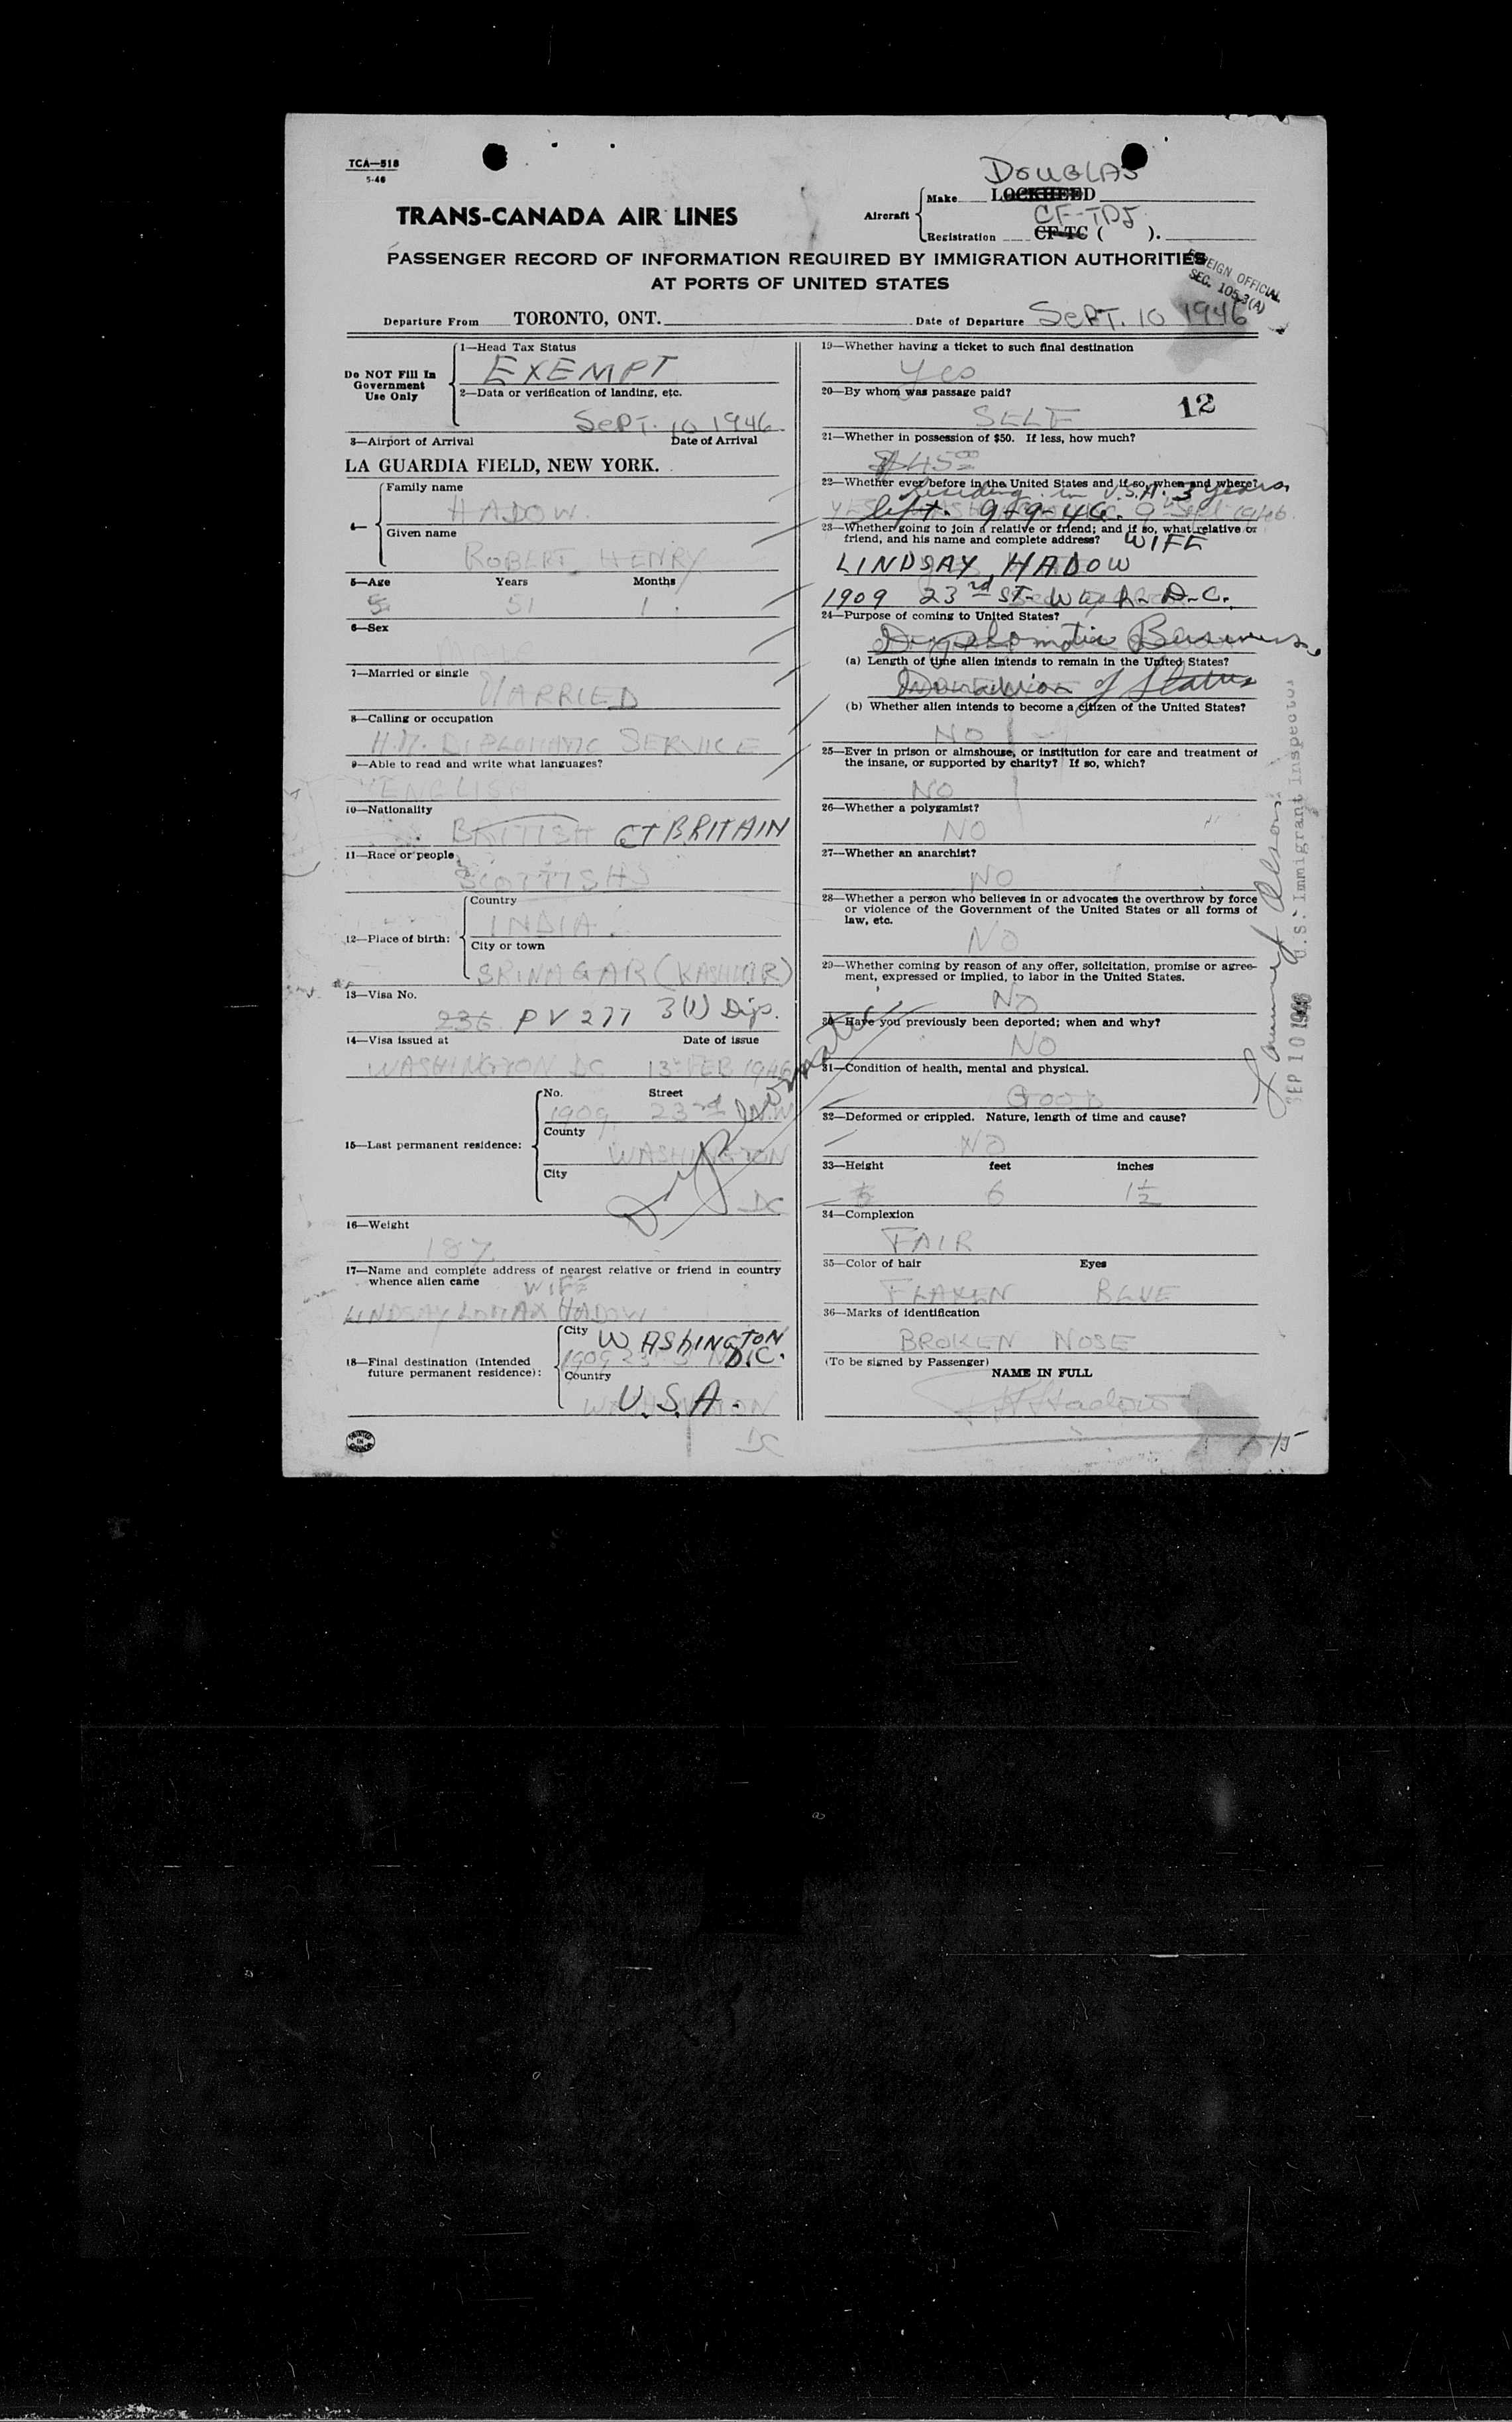 TCA—518
5-46
DOUGLAS
Make LOCKHEED
TRANS-CANADA AIR LINES
Aircraft
CF-TDJ
Registration CF-TC ( ).
PASSENGER RECORD OF INFORMATION REQUIRED BY IMMIGRATION AUTHORITIES
AT PORTS OF UNITED STATES
FOREIGN OFFICIAL
SEC. 105.3(A)
Departure From TORONTO, ONT. Date of Departure SEPT. 10 1946
Do NOT Fill In
Government
Use Only
1—Head Tax Status
EXEMPT
2—Data or verification of landing, etc.
SEPT. 10 1946
3—Airport of Arrival Date of Arrival
LA GUARDIA FIELD, NEW YORK.
4—
Family name
HADOW.
Given name
ROBERT HENRY
5—Age Years Months
51 1
6—Sex
Male
7—Married or single
MARRIED
8—Calling or occupation
H.M. DIPLOMATIC SERVICE
9—Able to read and write what languages?
ENGLISH
10—Nationality
BRITISH GT BRITAIN
11—Race or people
SCOTTISH
12—Place of birth:
Country
INDIA.
City or town
SRINAGAR (KASHMIR)
13—Visa No.
236 PV 277 3(1) Dip.
14—Visa issued at Date of issue
WASHINGTON DC 13 FEB 1946
15—Last permanent residence:
No. Street
1909 23rd N.W
County
WASHINGTON
City
DC
Diplomatic
16—Weight
187
17—Name and complete address of nearest relative or friend in country
whence alien came
WIFE
LINDSAY LOMAX HADOW
18—Final destination (Intended
future permanent residence):
City WASHINGTON
1909 23 D.C.
Country
U.S.A.
WASHINGTON
DC
PRINTED IN CANADA
19—Whether having a ticket to such final destination
Yes
20—By whom was passage paid?
SELF
12
21—Whether in possession of $50. If less, how much?
$45 00
22—Whether ever before in the United States and if so, when and where?
residing in U.S.A. 3 years
left. 9-9-46.
23—Whether going to join a relative or friend; and if so, what relative or
friend, and his name and complete address? WIFE
LINDSAY HADOW
1909 23rd ST. Wash D.C.
24—Purpose of coming to United States?
Diplomatic Business
(a) Length of time alien intends to remain in the United States?
Duration of Status
(b) Whether alien intends to become a citizen of the United States?
NO
25—Ever in prison or almshouse, or institution for care and treatment of
the insane, or supported by charity? If so, which?
NO
26—Whether a polygamist?
NO
27—Whether an anarchist?
NO
28—Whether a person who believes in or advocates the overthrow by force
or violence of the Government of the United States or all forms of
law, etc.
NO
29—Whether coming by reason of any offer, solicitation, promise or agree-
ment, expressed or implied, to labor in the United States.
NO
30—Have you previously been deported; when and why?
NO
31—Condition of health, mental and physical.
GOOD
32—Deformed or crippled. Nature, length of time and cause?
NO
33—Height feet inches
6 1½
34—Complexion
FAIR
35—Color of hair Eyes
FLAXEN BLUE
36—Marks of identification
BROKEN NOSE
(To be signed by Passenger)
NAME IN FULL
RH Hadow
15
U.S. Immigrant Inspector
SEP 10 1946